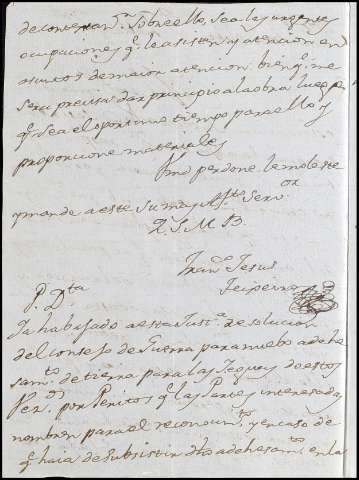 de contextarm.e sobre ello, sea las urgentes
ocupaciones q.e le asisten, y atencion en
asuntos de maior atencion. bien q.e me
sera precisa dar principio a la obra luego
q.e sea el oportuno tiempo para ello y
proporcione materiales
Vmd perdone le moleste
y mande a este su mas af.to Serv.or
Q. S. M. B.
Fran.co Jesus
Teixeira
P. D.ta
Ya ha bajado a esta Just.a resolucion
del consejo de Guerra para nuebo adehe
sam.to de tierra para las Yeguas de estos
Vez.s por Peritos q.e las Partes interesadas
nombren para el reconocim.to y en caso de
q.e haia de subsistir dho adehesam.to en la